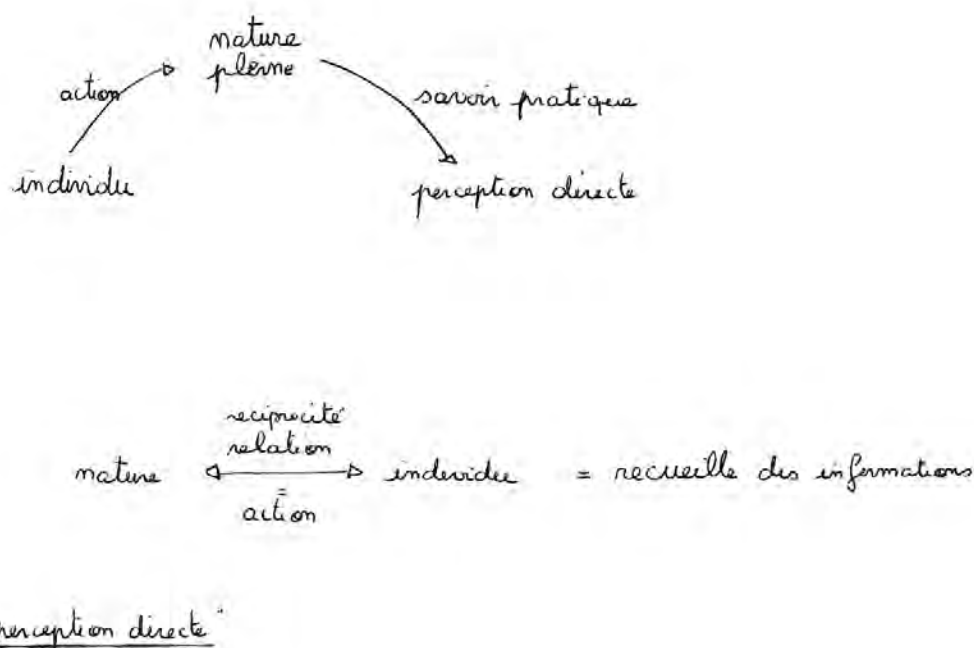 nature
pleine
action
savoir pratique
individu
perception directe
reciprocité
relation
nature individu = recueille des informations
=
action
perception directe"